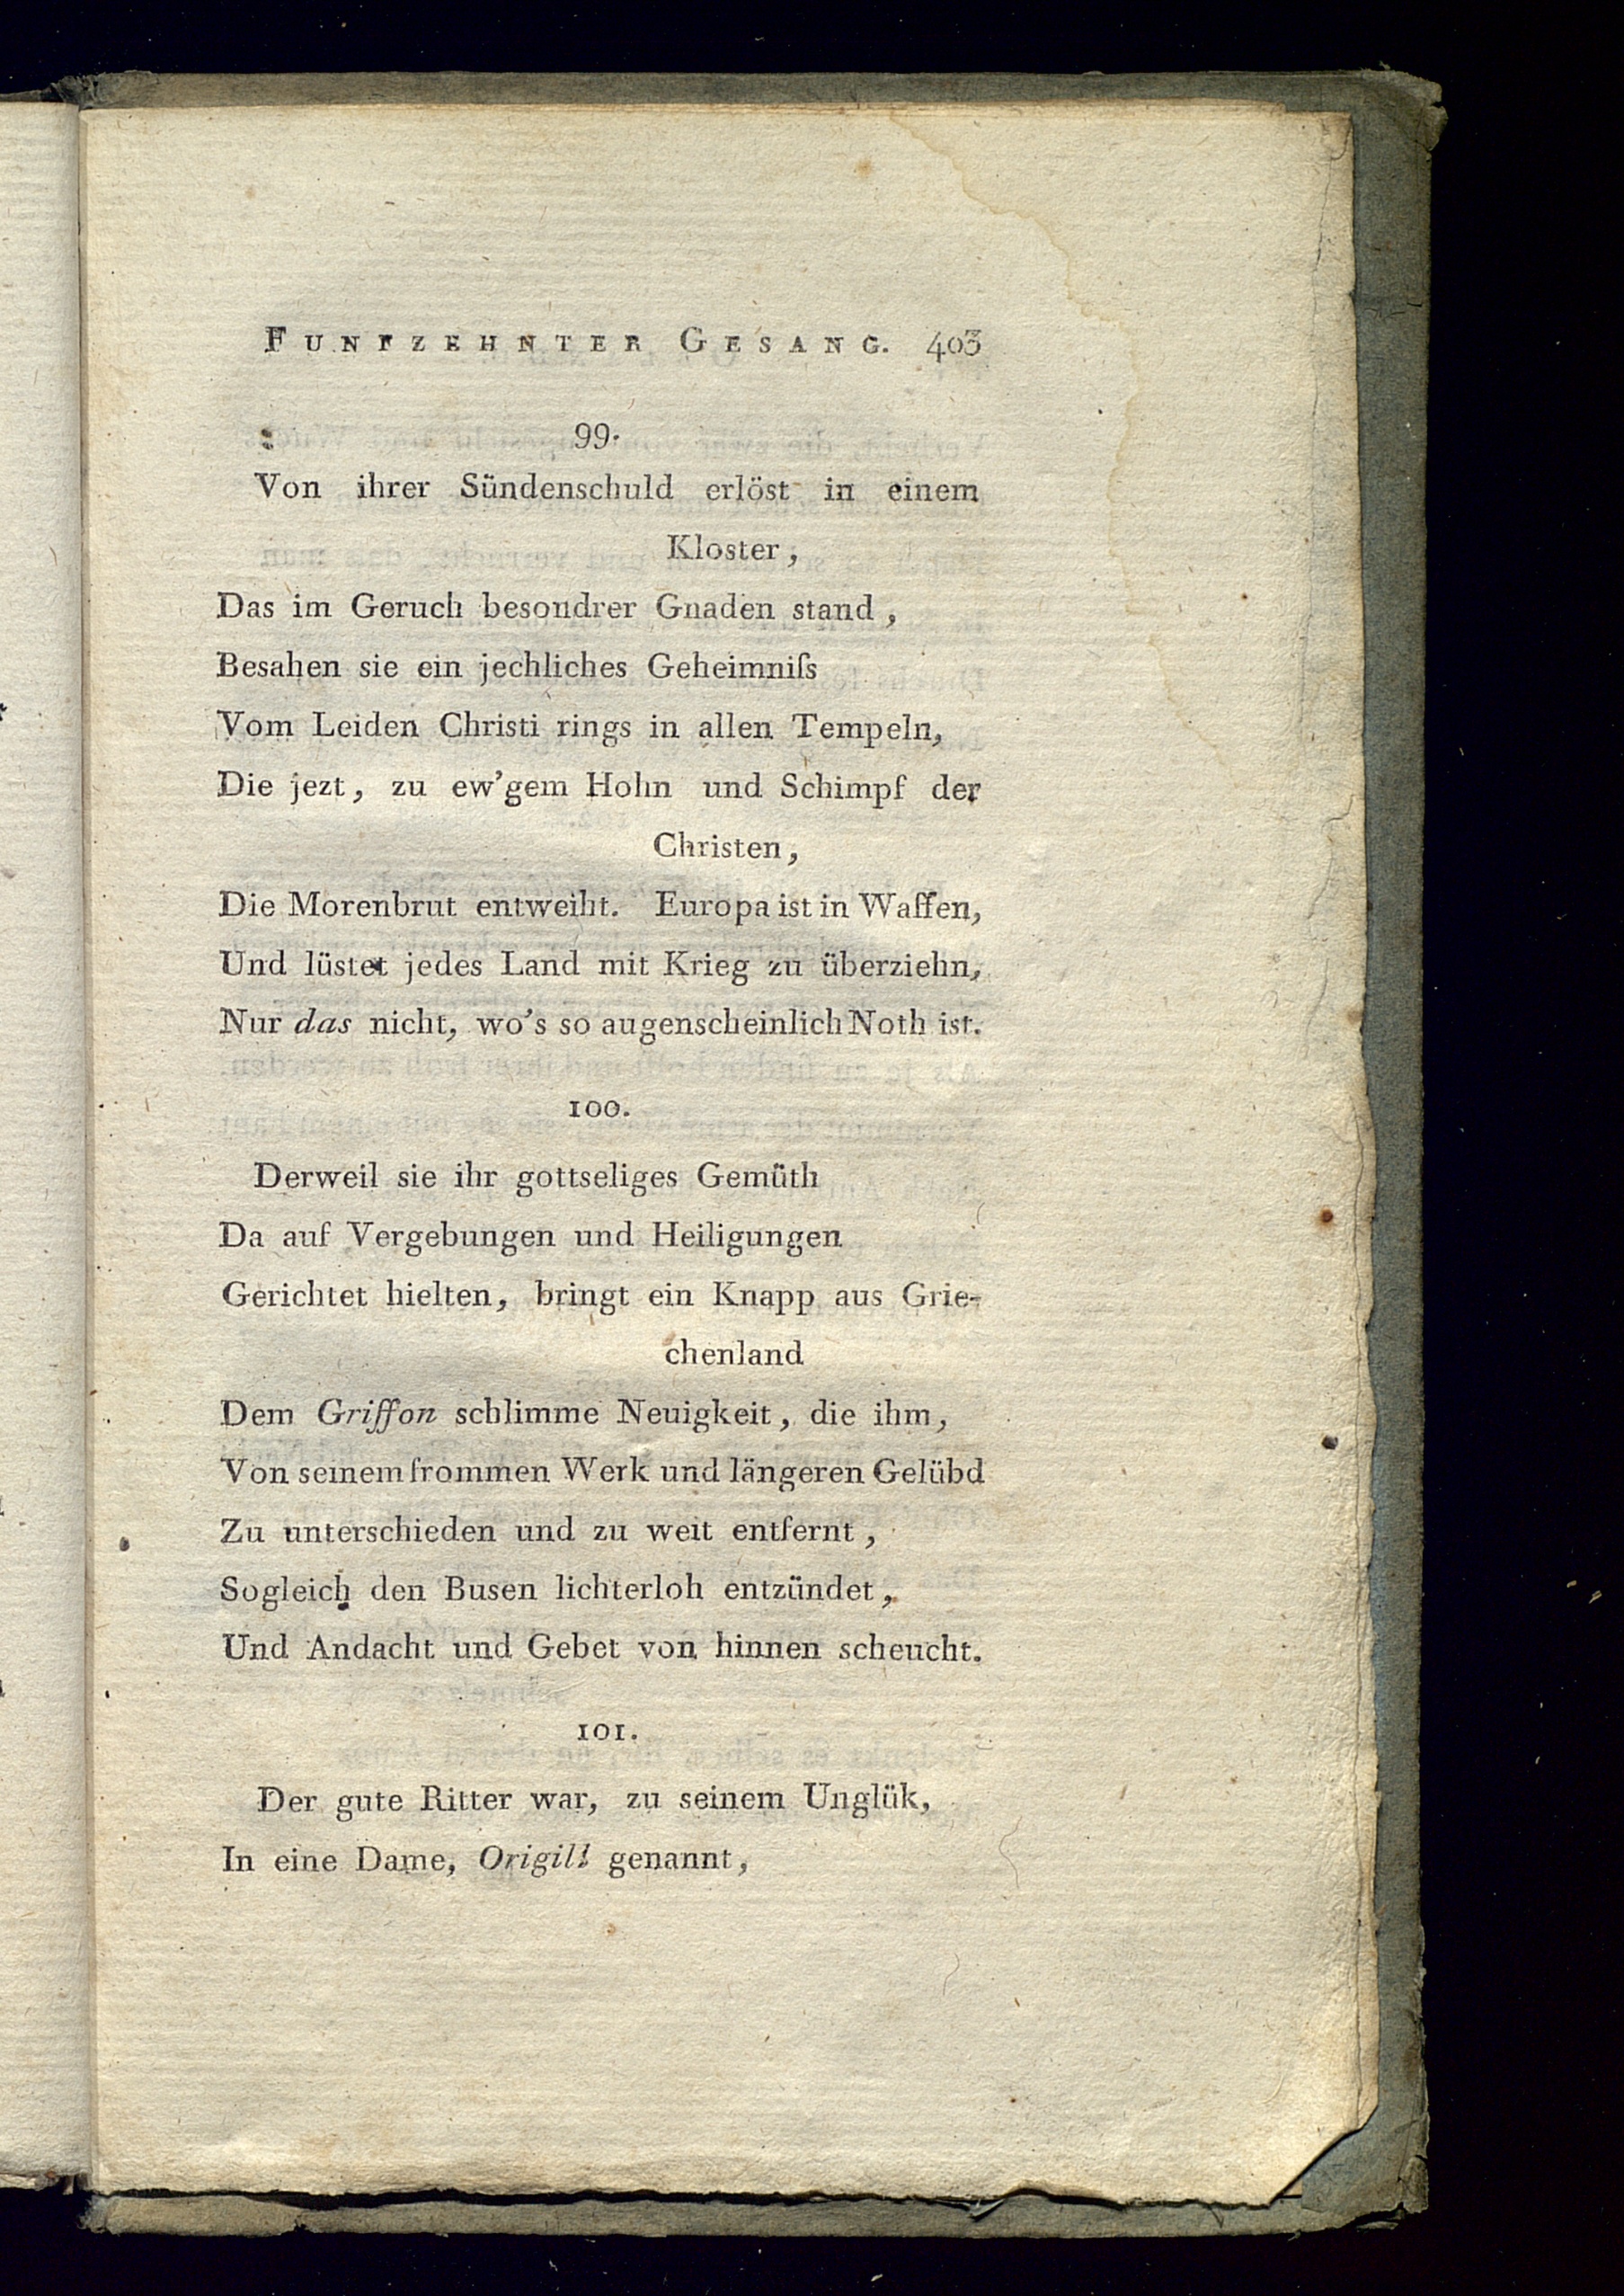 FUNFZEHNTER GESANG. 403
99.
Von ihrer Sündenschuld erlöst in einem
Kloster,
Das im Geruch besondrer Gnaden stand,
Besahen sie ein jechliches Geheimniſs
Vom Leiden Christi rings in allen Tempeln,
Die jezt, zu ew'gem Hohn und Schimpf der
Christen,
Die Morenbrut entweiht. Europa ist in Waffen,
Und lüstet jedes Land mit Krieg zu überziehn,
Nur das nicht, wo's so augenscheinlich Noth ist.
100.
Derweil sie ihr gottseliges Gemüth
Da auf Vergebungen und Heiligungen
Gerichtet hielten, bringt ein Knapp aus Grie-
chenland
Dem Griffon schlimme Neuigkeit, die ihm,
Von seinem frommen Werk und längeren Gelübd
Zu unterschieden und zu weit entfernt,
Sogleich den Busen lichterloh entzündet,
Und Andacht und Gebet von hinnen scheucht.
101.
Der gute Ritter war, zu seinem Unglük,
In eine Dame, Origill genannt,